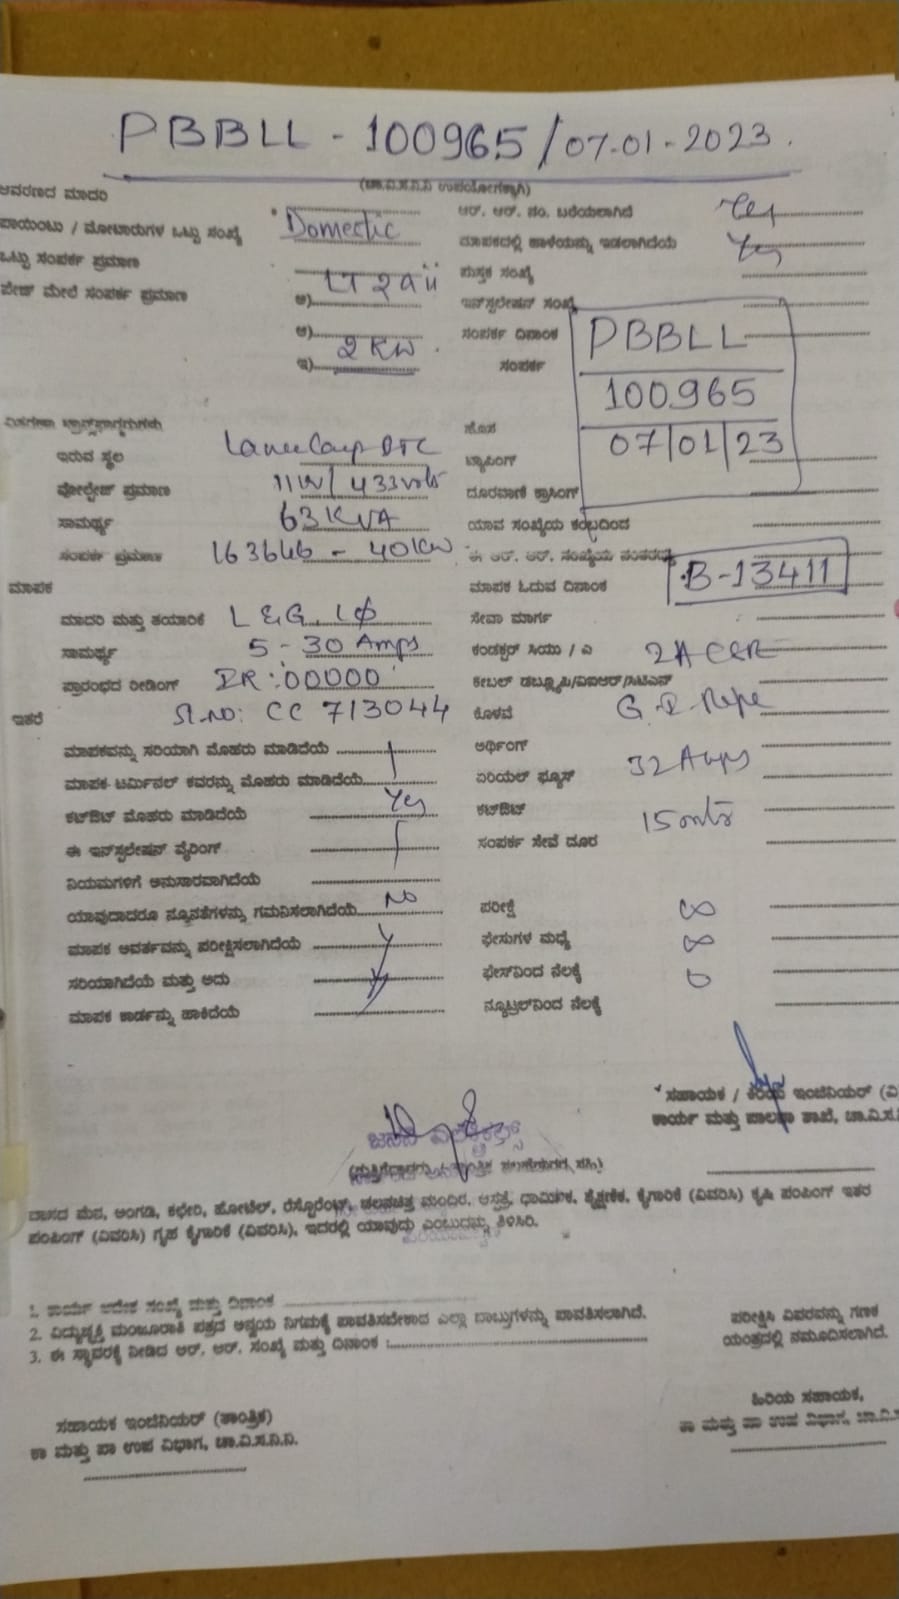 PBBLL - 100965 / 07-01-2023.
(ಚಾ.ವಿ.ಸ.ನಿ.ನಿ ಉಪಯೋಗಕ್ಕಾಗಿ)
ಆವರಣದ ಮಾದರಿ Domestic ಆರ್. ಆರ್. ಸಂ. ಬರೆಯಲಾಗಿದೆ Yes
ಪಾಯಿಂಟು / ಮೋಟಾರುಗಳ ಒಟ್ಟು ಸಂಖ್ಯೆ ಮಾಪಕದಲ್ಲಿ ಹಾಳೆಯನ್ನು ಇಡಲಾಗಿದೆಯೆ Yes
ಒಟ್ಟು ಸಂಪರ್ಕ ಪ್ರಮಾಣ LT2aii ಪುಸ್ತಕ ಸಂಖ್ಯೆ
ಪೇಜ್ ಮೇಲೆ ಸಂಪರ್ಕ ಪ್ರಮಾಣ ಅ) ಇನ್‌ಸ್ಟಲೇಷನ್ ಸಂಖ್ಯೆ
ಆ) ಸಂಪರ್ಕ ದಿನಾಂಕ PBBLL
ಇ) 2 KW ಸಂಪರ್ಕ
100965
ವಿತರಣಾ ಟ್ರಾನ್ಸ್‌ಫಾರ್ಮರುಗಳು ಹೊಸ 07/01/23
ಇರುವ ಸ್ಥಳ ಟ್ಯಾಪಿಂಗ್
ವೋಲ್ಟೇಜ್ ಪ್ರಮಾಣ 11KV/433volt ದೂರವಾಣಿ ಕ್ರಾಸಿಂಗ್
ಸಾಮರ್ಥ್ಯ 63 KVA ಯಾವ ಸಂಖ್ಯೆಯ ಕಂಬದಿಂದ
ಸಂಪರ್ಕ ಪ್ರಮಾಣ - 40KW ಈ ಆರ್. ಆರ್. ಸಂಖ್ಯೆಯ ನಂತರದ್ದು
ಮಾಪಕ ಮಾಪಕ ಓದುವ ದಿನಾಂಕ B-13411
ಮಾದರಿ ಮತ್ತು ತಯಾರಿಕೆ L&G, 1φ ಸೇವಾ ಮಾರ್ಗ
ಸಾಮರ್ಥ್ಯ 5-30 Amps ಕಂಡಕ್ಟರ್ ಸಿಯು / ಎ
ಪ್ರಾರಂಭದ ರೀಡಿಂಗ್ IR:00000 ಕೇಬಲ್ ಡಬ್ಲ್ಯೂಪಿ/ಐಐಆರ್/ಸಿಟಿಎಸ್
ಇತರೆ Sl.no: CC 713044 ಕೊಳವೆ G.I. Pipe
ಮಾಪಕವನ್ನು ಸರಿಯಾಗಿ ಮೊಹರು ಮಾಡಿದೆಯೆ ಅರ್ಥಿಂಗ್
ಮಾಪಕ-ಟರ್ಮಿನಲ್ ಕವರನ್ನು ಮೊಹರು ಮಾಡಿದೆಯೆ ಏರಿಯಲ್ ಫ್ಯೂಸ್ 32 Amps
ಕಟ್‌ಔಟ್ ಮೊಹರು ಮಾಡಿದೆಯೆ Yes ಕಟ್‌ಔಟ್
ಈ ಇನ್‌ಸ್ಟಲೇಷನ್ ವೈರಿಂಗ್ ಸಂಪರ್ಕ ಸೇವೆ ದೂರ 15 mtr
ನಿಯಮಗಳಿಗೆ ಅನುಸಾರವಾಗಿದೆಯೆ
ಯಾವುದಾದರೂ ನ್ಯೂನತೆಗಳನ್ನು ಗಮನಿಸಲಾಗಿದೆಯೆ No ಪರೀಕ್ಷೆ ∞
ಮಾಪಕ ಆವರ್ತವನ್ನು ಪರೀಕ್ಷಿಸಲಾಗಿದೆಯೆ ಫೇಸುಗಳ ಮಧ್ಯೆ ∞
ಸರಿಯಾಗಿದೆಯೆ ಮತ್ತು ಅದು ಫೇಸ್‌ನಿಂದ ನೆಲಕ್ಕೆ 0
ಮಾಪಕ ಕಾರ್ಡನ್ನು ಹಾಕಿದೆಯೆ ನ್ಯೂಟ್ರಲ್‌ನಿಂದ ನೆಲಕ್ಕೆ
ಸಹಾಯಕ / ಕಿರಿಯ ಇಂಜಿನಿಯರ್ (ವಿ
ಕಾರ್ಯ ಮತ್ತು ಪಾಲನಾ ಶಾಖೆ, ಚಾ.ವಿ.ಸ.
(ಗುತ್ತಿಗೆದಾರರು ಸಹಿ)
ವಾಸದ ಮನೆ, ಅಂಗಡಿ, ಕಛೇರಿ, ಹೋಟೆಲ್, ರೆಸ್ಟೊರೆಂಟ್, ಚಲನಚಿತ್ರ ಮಂದಿರ, ಆಸ್ಪತ್ರೆ, ಧಾರ್ಮಿಕ, ಶೈಕ್ಷಣಿಕ, ಕೈಗಾರಿಕೆ (ವಿವರಿಸಿ) ಕೃಷಿ ಪಂಪಿಂಗ್ ಇತರ
ಪಂಪಿಂಗ್ (ವಿವರಿಸಿ) ಗೃಹ ಕೈಗಾರಿಕೆ (ವಿವರಿಸಿ), ಇದರಲ್ಲಿ ಯಾವುದು ಎಂಬುದನ್ನು ತಿಳಿಸಿರಿ.
1. ಕಾರ್ಯ ಆದೇಶ ಸಂಖ್ಯೆ ಮತ್ತು ದಿನಾಂಕ
2. ವಿದ್ಯುಚ್ಛಕ್ತಿ ಮಂಜೂರಾತಿ ಪತ್ರದ ಅನ್ವಯ ನಿಗಮಕ್ಕೆ ಪಾವತಿಸಬೇಕಾದ ಎಲ್ಲಾ ಬಾಬ್ತುಗಳನ್ನು ಪಾವತಿಸಲಾಗಿದೆ. ಪರೀಕ್ಷಿಸಿ ವಿವರವನ್ನು ಗಣಕ
3. ಈ ಸ್ಥಾವರಕ್ಕೆ ನೀಡಿದ ಆರ್. ಆರ್. ಸಂಖ್ಯೆ ಮತ್ತು ದಿನಾಂಕ : ಯಂತ್ರದಲ್ಲಿ ನಮೂದಿಸಲಾಗಿದೆ.
ಹಿರಿಯ ಸಹಾಯಕ,
ಸಹಾಯಕ ಇಂಜಿನಿಯರ್ (ತಾಂತ್ರಿಕ) ಕಾ ಮತ್ತು ಪಾ ಉಪ ವಿಭಾಗ, ಚಾ.ವಿ.
ಕಾ ಮತ್ತು ಪಾ ಉಪ ವಿಭಾಗ, ಚಾ.ವಿ.ಸ.ನಿ.ನಿ.